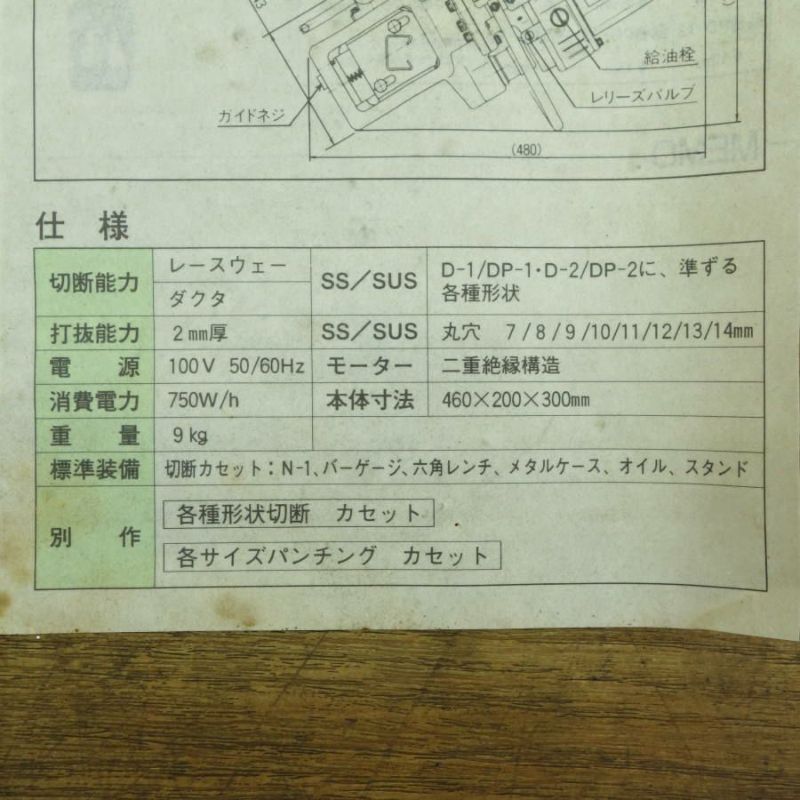 給油栓
レリーズバルブ
ガイドネジ
(480)
仕 様
切断能力 レースウェー SS/SUS D-1/DP-1・D-2/DP-2に、準ずる
ダクタ 各種形状
打抜能力 2mm厚 SS/SUS 丸穴 7/8/9/10/11/12/13/14mm
電 源 100V 50/60Hz モーター 二重絶縁構造
消費電力 750W/h 本体寸法 460×200×300mm
重 量 9kg
標準装備 切断カセット:N-1、バーゲージ、六角レンチ、メタルケース、オイル、スタンド
別 作 各種形状切断 カセット
各サイズパンチング カセット